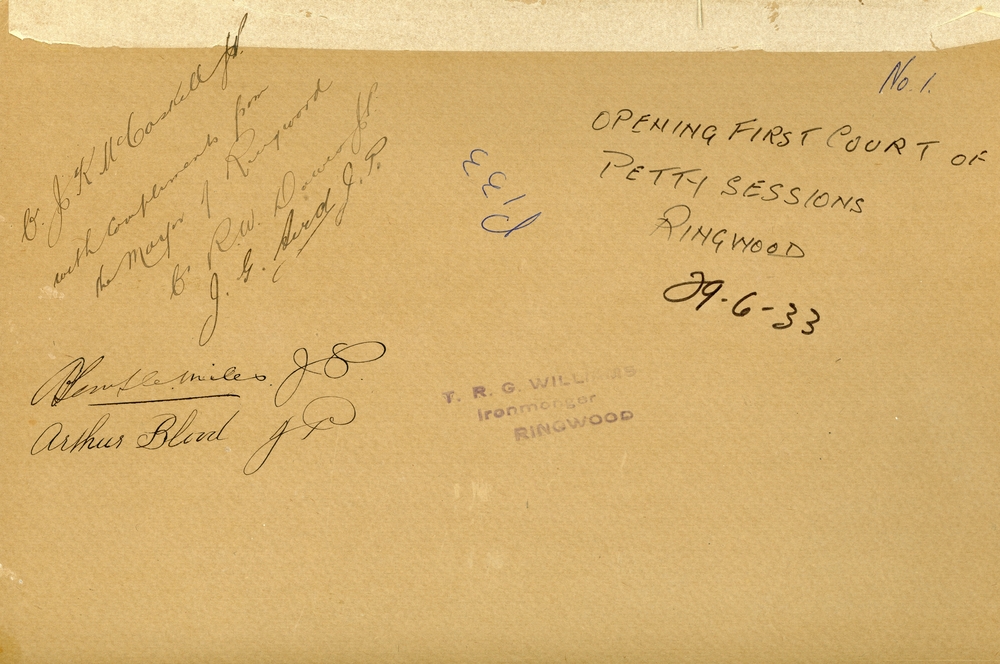 Cr. J K McCaskill JP.
with Compliments from
the Mayor of Ringwood
Cr. R.W. JP.
J. G. Aird J.P.
Miles. JP.
Arthur Blood JP
P133
No. 1.
OPENING FIRST COURT OF
PETTY SESSIONS
RINGWOOD
29-6-33
T. R. G. WILLIAMS
Ironmonger
RINGWOOD